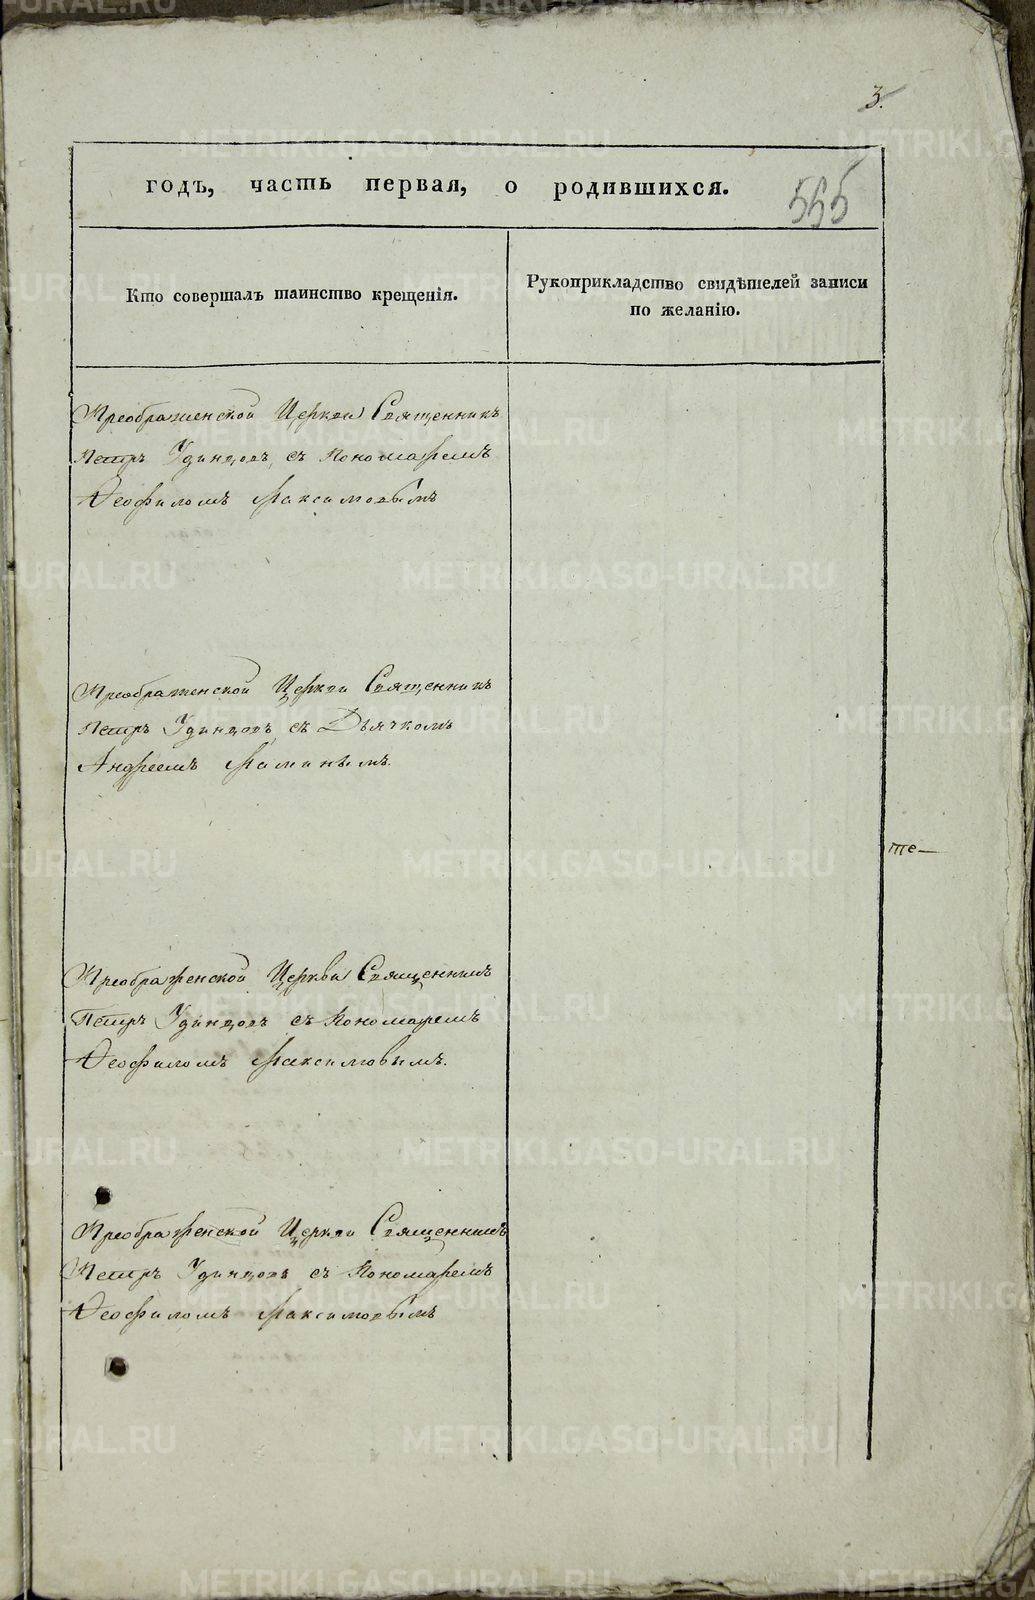 3.
годъ, часть первая, о родившихся.
565
Кто совершалъ таинство крещенія.
Рукоприкладство свидѣтелей записи
по желанію.
Преображенской Церкви Священникъ
Петръ Удинцовъ, съ Пономаремъ
Ѳеофиломъ Максимовымъ
Преображенской Церкви Священникъ
Петръ Удинцовъ, съ Дьячкомъ
Андреемъ Маминымъ.
те—
Преображенской Церкви Священникъ
Петръ Удинцовъ съ Пономаремъ
Ѳеофиломъ Максимовымъ.
Преображенской Церкви Священникъ
Петръ Удинцовъ съ Пономаремъ
Ѳеофиломъ Максимовымъ
METRIKI.GASO-URAL.RU